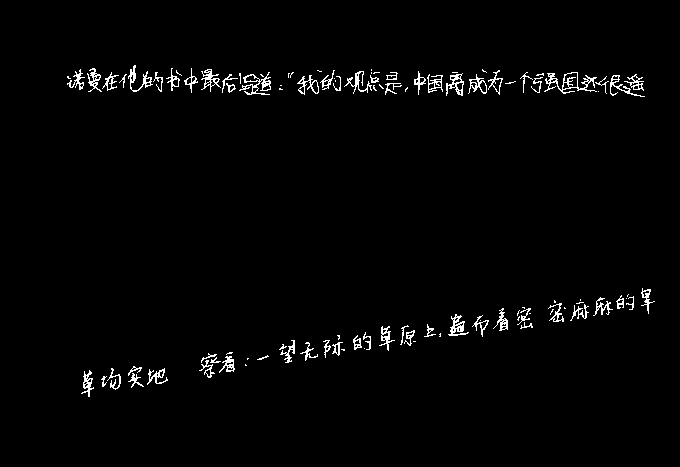 诺曼在他的书中最后写道:“我的观点是,中国离成为一个强国还很遥
草场实地 察看:一望无际的草原上,遍布着密 密麻麻的旱